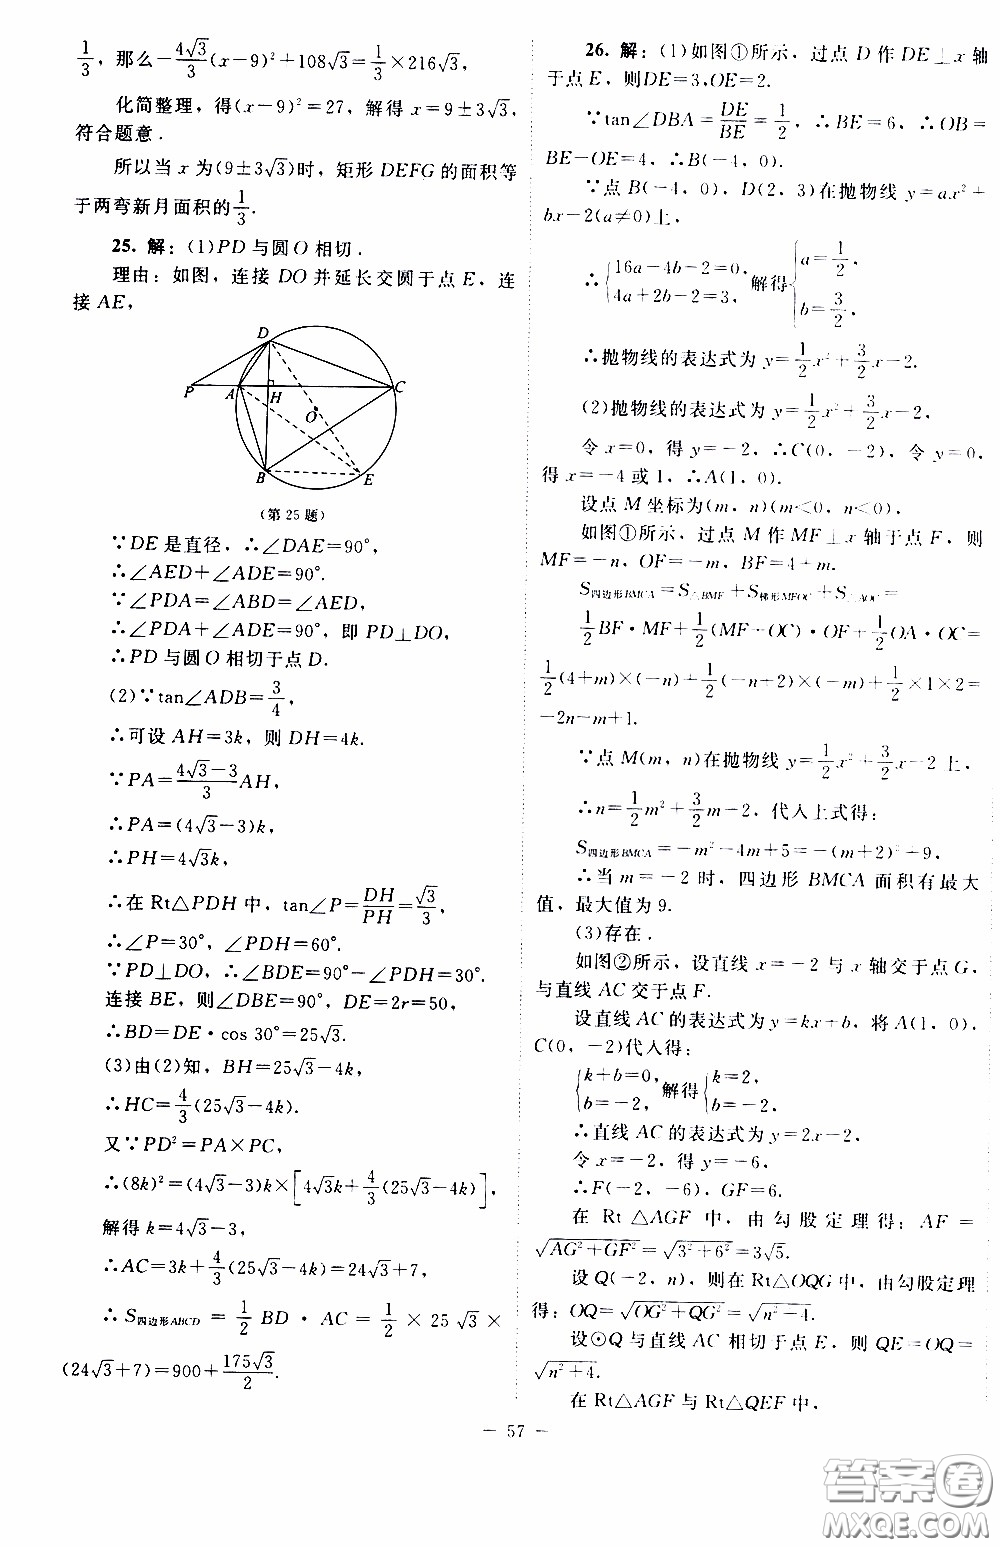 1/3，那么-4√3/3(x-9)²+108√3=1/3×216√3，
化简整理，得(x-9)²=27，解得 x=9±3√3，
符合题意．
所以当 x 为(9±3√3)时，矩形 DEFG 的面积等
于两弯新月面积的1/3.
25. 解：(1)PD 与圆 O 相切．
理由：如图，连接 DO 并延长交圆于点 E，连
接 AE，
D
P
A
H
C
O
B
E
(第 25 题)
∵DE 是直径，∴∠DAE=90°，
∴∠AED+∠ADE=90°.
∵∠PDA=∠ABD=∠AED，
∴∠PDA+∠ADE=90°，即 PD⊥DO，
∴PD 与圆 O 相切于点 D.
(2)∵tan∠ADB=3/4，
∴可设 AH=3k，则 DH=4k.
∵PA=(4√3-3)/3 AH，
∴PA=(4√3-3)k，
∴PH=4√3k，
∴在 Rt△PDH 中，tan∠P=DH/PH=√3/3，
∴∠P=30°，∠PDH=60°.
∵PD⊥DO，∴∠BDE=90°-∠PDH=30°.
连接 BE，则∠DBE=90°，DE=2r=50，
∴BD=DE·cos 30°=25√3.
(3)由(2)知，BH=25√3-4k，
∴HC=4/3(25√3-4k).
又∵PD²=PA×PC，
∴(8k)²=(4√3-3)k×[4√3k+4/3(25√3-4k)]，
解得 k=4√3-3，
∴AC=3k+4/3(25√3-4k)=24√3+7，
∴S四边形ABCD=1/2 BD·AC=1/2×25√3×
(24√3+7)=900+175√3/2.
26. 解：(1)如图①所示，过点 D 作 DE⊥x 轴
于点 E，则DE=3，OE=2.
∵tan∠DBA=DE/BE=1/2，∴BE=6，∴OB=
BE-OE=4，∴B(-4，0).
∵点 B(-4，0)，D(2，3)在抛物线 y=ax²+
bx-2(a≠0)上，
∴{16a-4b-2=0，4a+2b-2=3，解得{a=1/2，b=3/2，
∴抛物线的表达式为 y=1/2x²+3/2x-2.
(2)抛物线的表达式为 y=1/2x²+3/2x-2，
令 x=0，得 y=-2，∴C(0，-2)，令 y=0，
得 x=-4 或 1，∴A(1，0).
设点 M 坐标为(m，n)(m<0，n<0).
如图①所示，过点 M 作 MF⊥x 轴于点 F，则
MF=-n，OF=-m，BF=4+m.
S四边形BMCA=S△BMF+S梯形MFOC+S△AOC=
1/2BF·MF+1/2(MF+OC)·OF+1/2OA·OC=
1/2(4+m)×(-n)+1/2(-n+2)×(-m)+1/2×1×2=
-2n-m+1.
∵点 M(m，n)在抛物线 y=1/2x²+3/2x-2 上，
∴n=1/2m²+3/2m-2，代入上式得：
S四边形BMCA=-m²-4m+5=-(m+2)²+9，
∴当 m=-2 时，四边形 BMCA 面积有最大
值，最大值为 9.
(3)存在．
如图②所示，设直线 x=-2 与 x 轴交于点 G，
与直线 AC 交于点 F.
设直线 AC 的表达式为 y=kx+b，将 A(1，0)，
C(0，-2)代入得：
{k+b=0，b=-2，解得{k=2，b=-2，
∴直线 AC 的表达式为 y=2x-2，
令 x=-2，得 y=-6，
∴F(-2，-6)，GF=6.
在 Rt△AGF 中，由勾股定理得：AF=
√(AG²+GF²)=√(3²+6²)=3√5.
设 Q(-2，n)，则在 Rt△OQG 中，由勾股定理
得：OQ=√(OG²+QG²)=√(n²+4).
设⊙Q 与直线 AC 相切于点 E，则 QE=OQ=
√(n²+4).
在 Rt△AGF 与 Rt△QEF 中，
— 57 —
答案卷
MXQE.COM